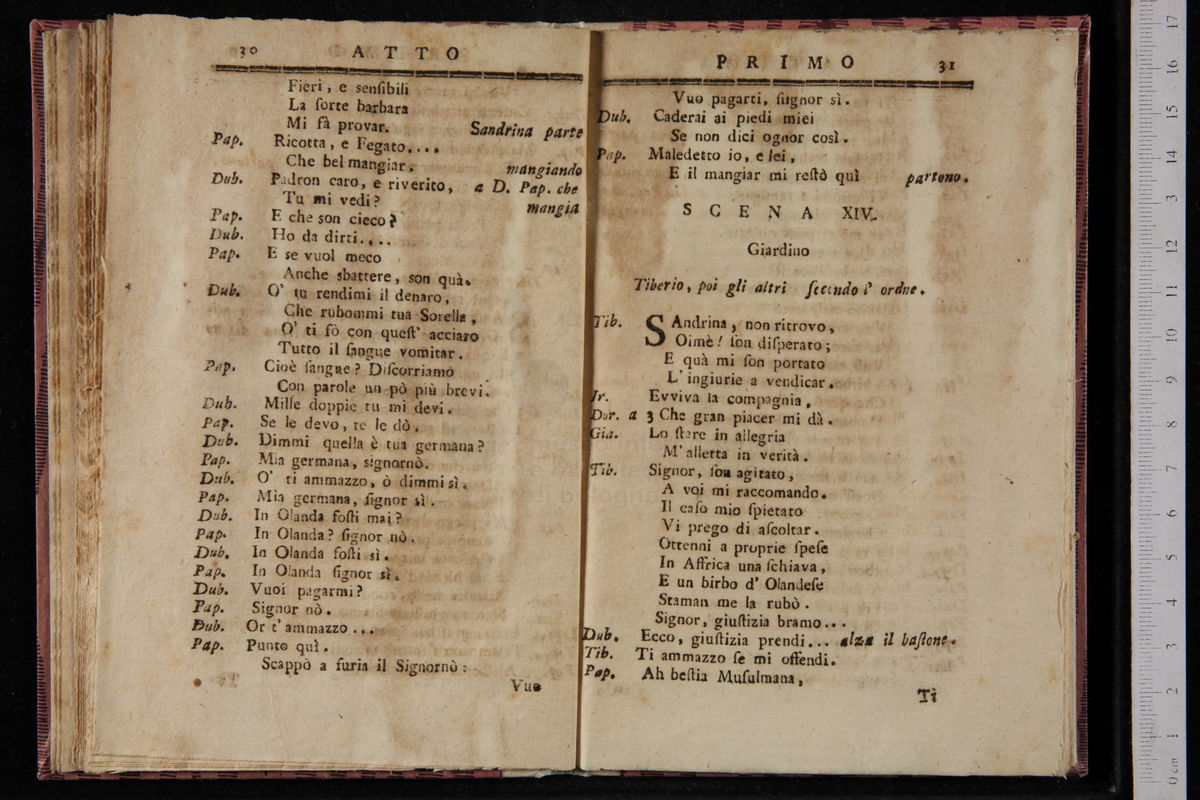 30 ATTO
Fieri, e senſibili
La ſorte barbara
Mi fà provar. Sandrina parte
Pap. Ricotta, e Fegato....
Che bel mangiar. mangiando
Dub. Padron caro, e riverito, a D. Pap. che
Tu mi vedi? mangia
Pap. E che son cieco?
Dub. Ho da dirti....
Pap. E se vuol meco
Anche sbattere, son quà.
Dub. O' tu rendimi il denaro,
Che rubommi tua Sorella,
O' ti fò con queſt' acciaro
Tutto il ſangue vomitar.
Pap. Cioè ſangue? Diſcorriamo
Con parole un pò più brevi.
Dub. Mille doppie tu mi devi.
Pap. Se le devo, te le dò.
Dub. Dimmi quella è tua germana?
Pap. Mia germana, signornò.
Dub. O' ti ammazzo, ò dimmi sì.
Pap. Mia germana, ſignor sì.
Dub. In Olanda foſti mai?
Pap. In Olanda? ſignor nò.
Dub. In Olanda foſti sì.
Pap. In Olanda ſignor sì.
Dub. Vuoi pagarmi?
Pap. Signor nò.
Dub. Or t'ammazzo...
Pap. Punto quì.
Scappò a furia il Signornò:
Vuo
PRIMO 31
Vuo pagarti, ſiignor sì.
Dub. Caderai ai piedi miei
Se non dici ognor così.
Pap. Maledetto io, e lei,
E il mangiar mi reſtò quì partono.
SCENA XIV.
Giardino
Tiberio, poi gli altri ſecondo l' ordne.
Tib. SAndrina, non ritrovo,
Oimè! ſon diſperato;
E quà mi ſon portato
L'ingiurie a vendicar.
Ir. Evviva la compagnia,
Dor. a 3 Che gran piacer mi dà.
Gia. Lo ſtare in allegria
M'alletta in verità.
Tib. Signor, ſon agitato,
A voi mi raccomando.
Il caſo mio ſpietato
Vi prego di aſcoltar.
Ottenni a proprie ſpeſe
In Affrica una ſchiava,
E un birbo d' Olandeſe
Staman me la rubò.
Signor, giuſtizia bramo...
Dub. Ecco, giuſtizia prendi... alza il baſtone.
Tib. Ti ammazzo ſe mi offendi.
Pap. Ah beſtia Muſulmana,
Ti